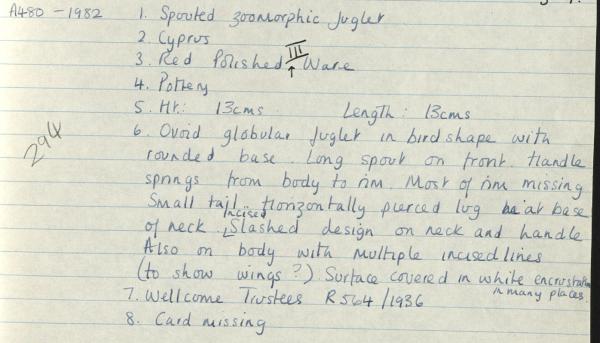 A480 - 1982
1. Spouted zoomorphic juglet
2. Cyprus
3. Red Polished III Ware
4. Pottery
5. Ht: 13cms Length: 13cms
294
6. Ovoid globular juglet in bird shape with
rounded base. Long spout on front. Handle
springs from body to rim. Most of rim missing
Small tail. Horizontally pierced lug at base
of neck. Incised Slashed design on neck and handle
Also on body with multiple incised lines
(to show wings?) Surface covered in white encrustation
in many places.
7. Wellcome Trustees R564/1936
8. Card missing